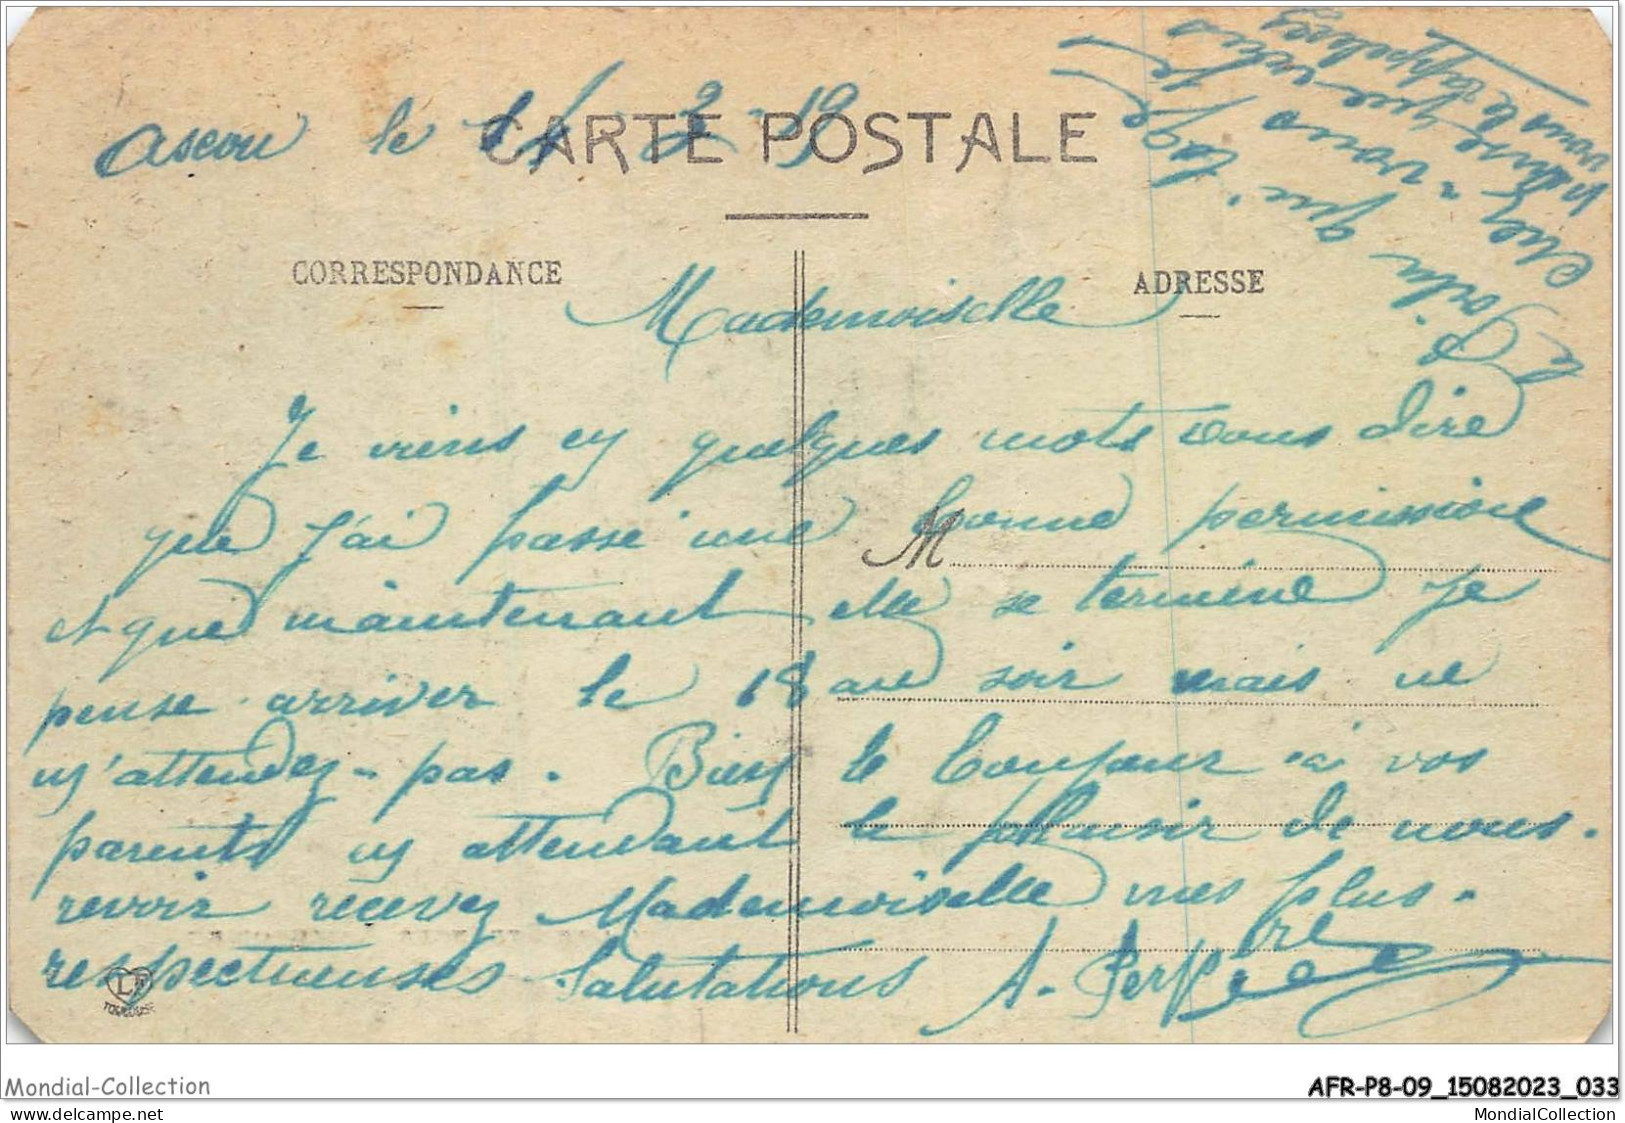 Ascou le 11 2 - 19
CARTE POSTALE
CORRESPONDANCE
ADRESSE
Mademoiselle
Je viens en quelques mots vous dire
que j'ai passé une bonne permission
M
et que maintenant elle se termine je
pense arriver le 18 au soir mais ne
m'attendez - pas. Bien le bonjour ai vos
parents en attendant le plaisir de nous.
revoir recevez Mademoiselle mes plus.
respectueuses Salutations A.
Voila
qui
vous
que
vous le rappeliez
LF
TOULOUSE
Mondial-Collection
AFR-P8-09_15082023_033
delcampe.net
MondialCollection